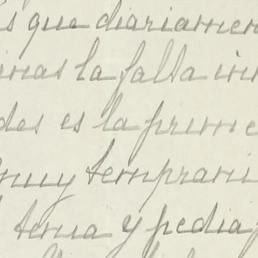 s que diariamen
inas la falla in
des es la prime
muy tempran
tenia y pedia